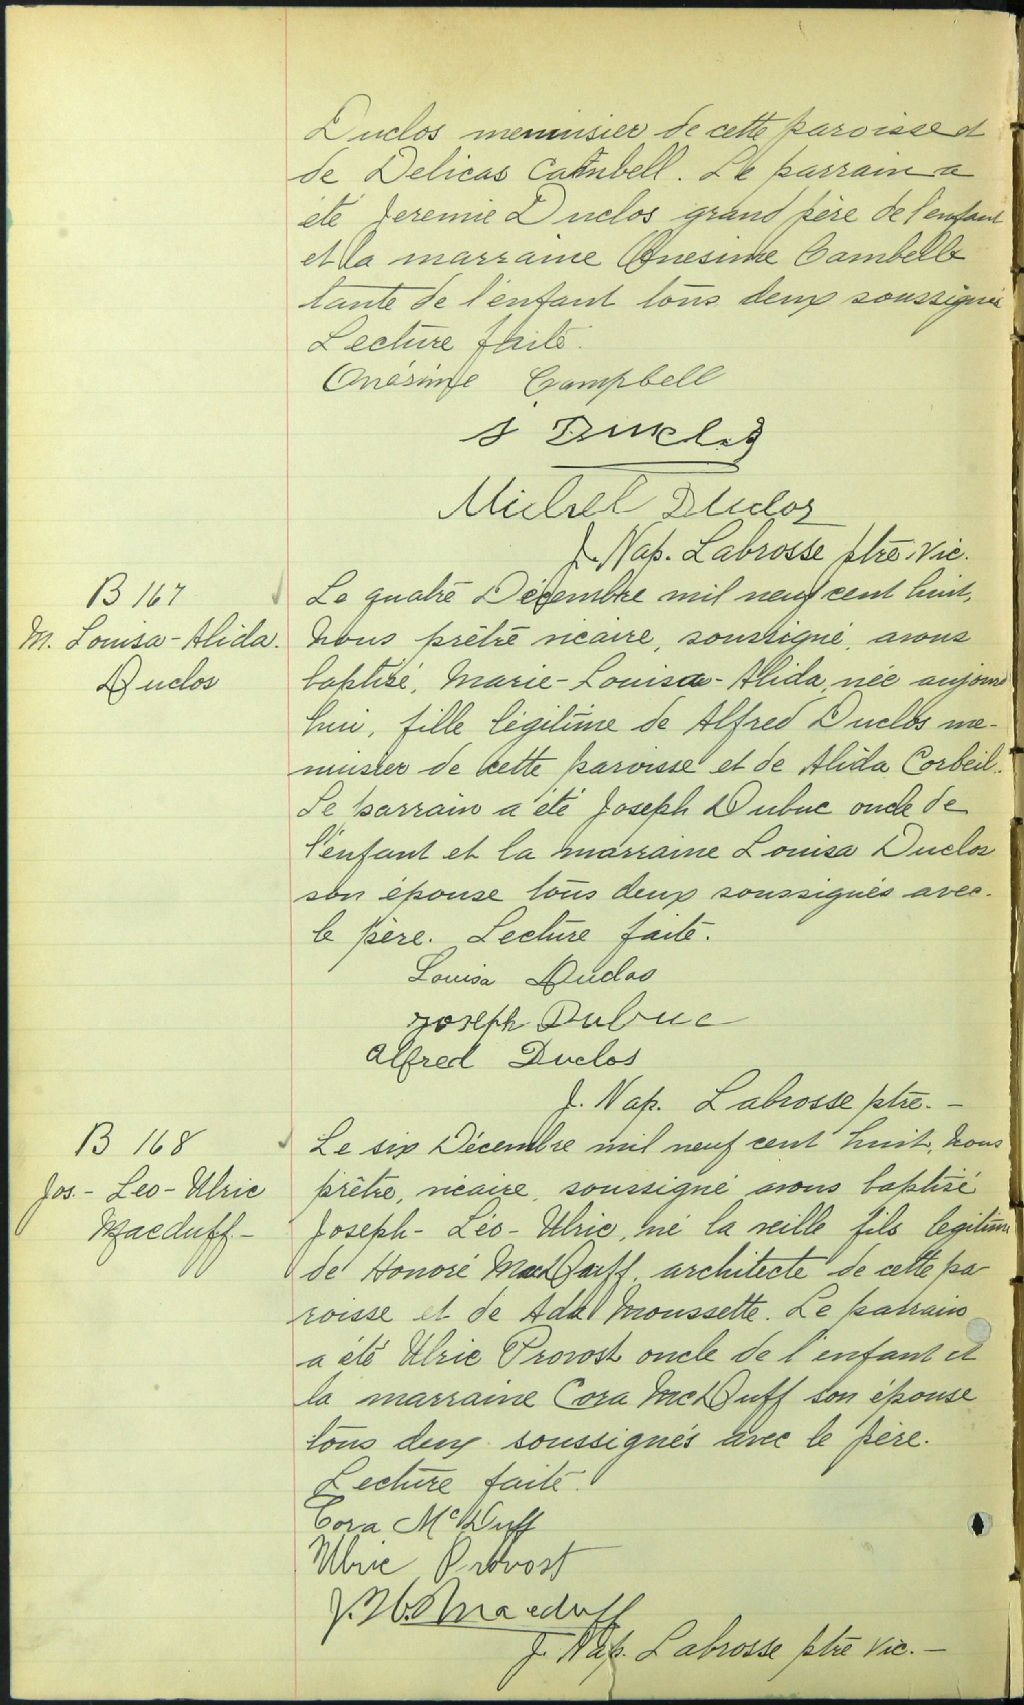 Duclos menuisier de cette paroisse et
de Delicas Cambell. Le parrain a
été Jeremie Duclos grand père de l'enfant
et la marraine Onesime Cambell
tante de l'enfant tous deux soussignés
Lecture faite.
Onésime Campbell
J Duclos
Michel Duclos
J. Nap. Labrosse ptre. vic.
B 167
M. Louisa-Alida.
Duclos
Le quatre Décembre mil neuf cent huit,
Nous prêtre vicaire, soussigné, avons
baptisé, Marie-Louisa-Alida, née aujourd
hui, fille légitime de Alfred Duclos me-
nuisier de cette paroisse et de Alida Corbeil.
Le parrain a été Joseph Dubuc oncle de
l'enfant et la marraine Louisa Duclos
son épouse tous deux soussignés avec
le père. Lecture faite.
Louisa Duclos
Joseph Dubuc
Alfred Duclos
J. Nap. Labrosse ptre. -
B 168
Jos. - Leo - Ulric
Macduff -
Le six Décembre mil neuf cent huit, Nous
prêtre, vicaire, soussigné avons baptisé
Joseph - Léo - Ulric, né la veille fils legitime
de Honoré MacDuff, architecte de cette pa
roisse et de Ada Moussette. Le parrain
a été Ulric Provost oncle de l'enfant et
la marraine Cora McDuff son épouse
tous deux soussignés avec le père.
Lecture faite.
Cora McDuff
Ulric Provost
J. H. Macduff
J. Nap. Labrosse ptre vic. -